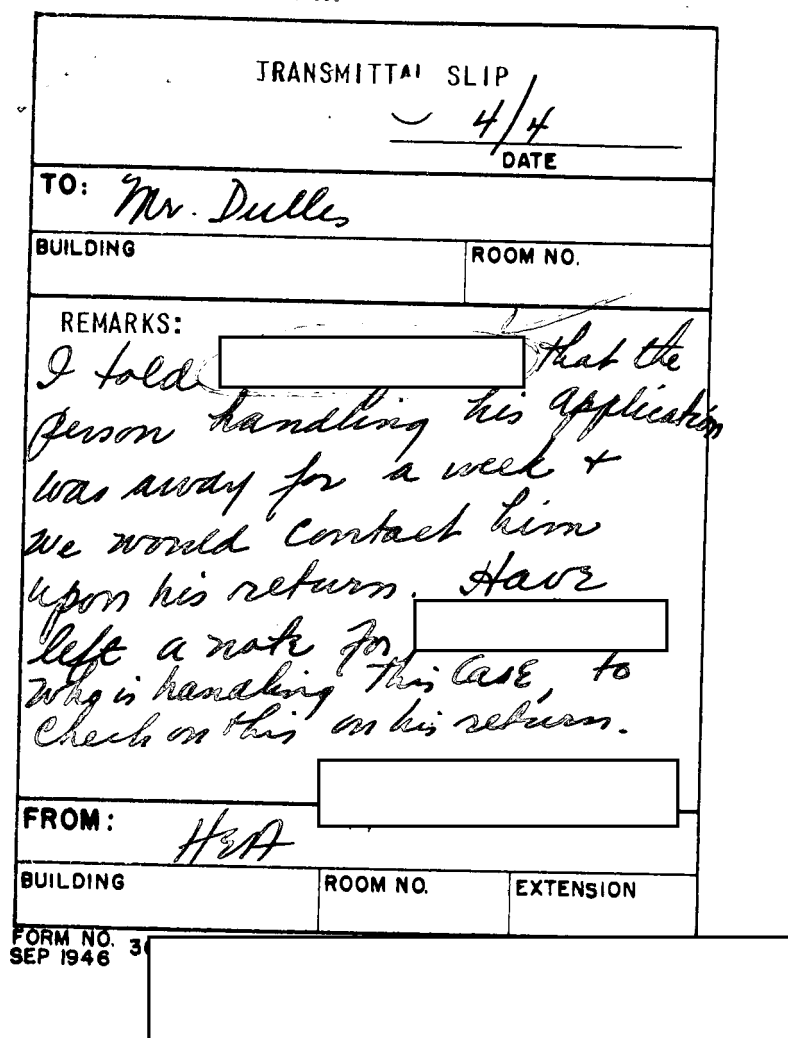 TRANSMITTAL SLIP
4/4
DATE
TO: Mr. Dulles
BUILDING ROOM NO.
REMARKS:
I told that the
person handling his application
was away for a week +
we would contact him
upon his return. Have
left a note for
who is handling this case, to
check on this on his return.
FROM: HEA
BUILDING ROOM NO. EXTENSION
FORM NO.
SEP 1946